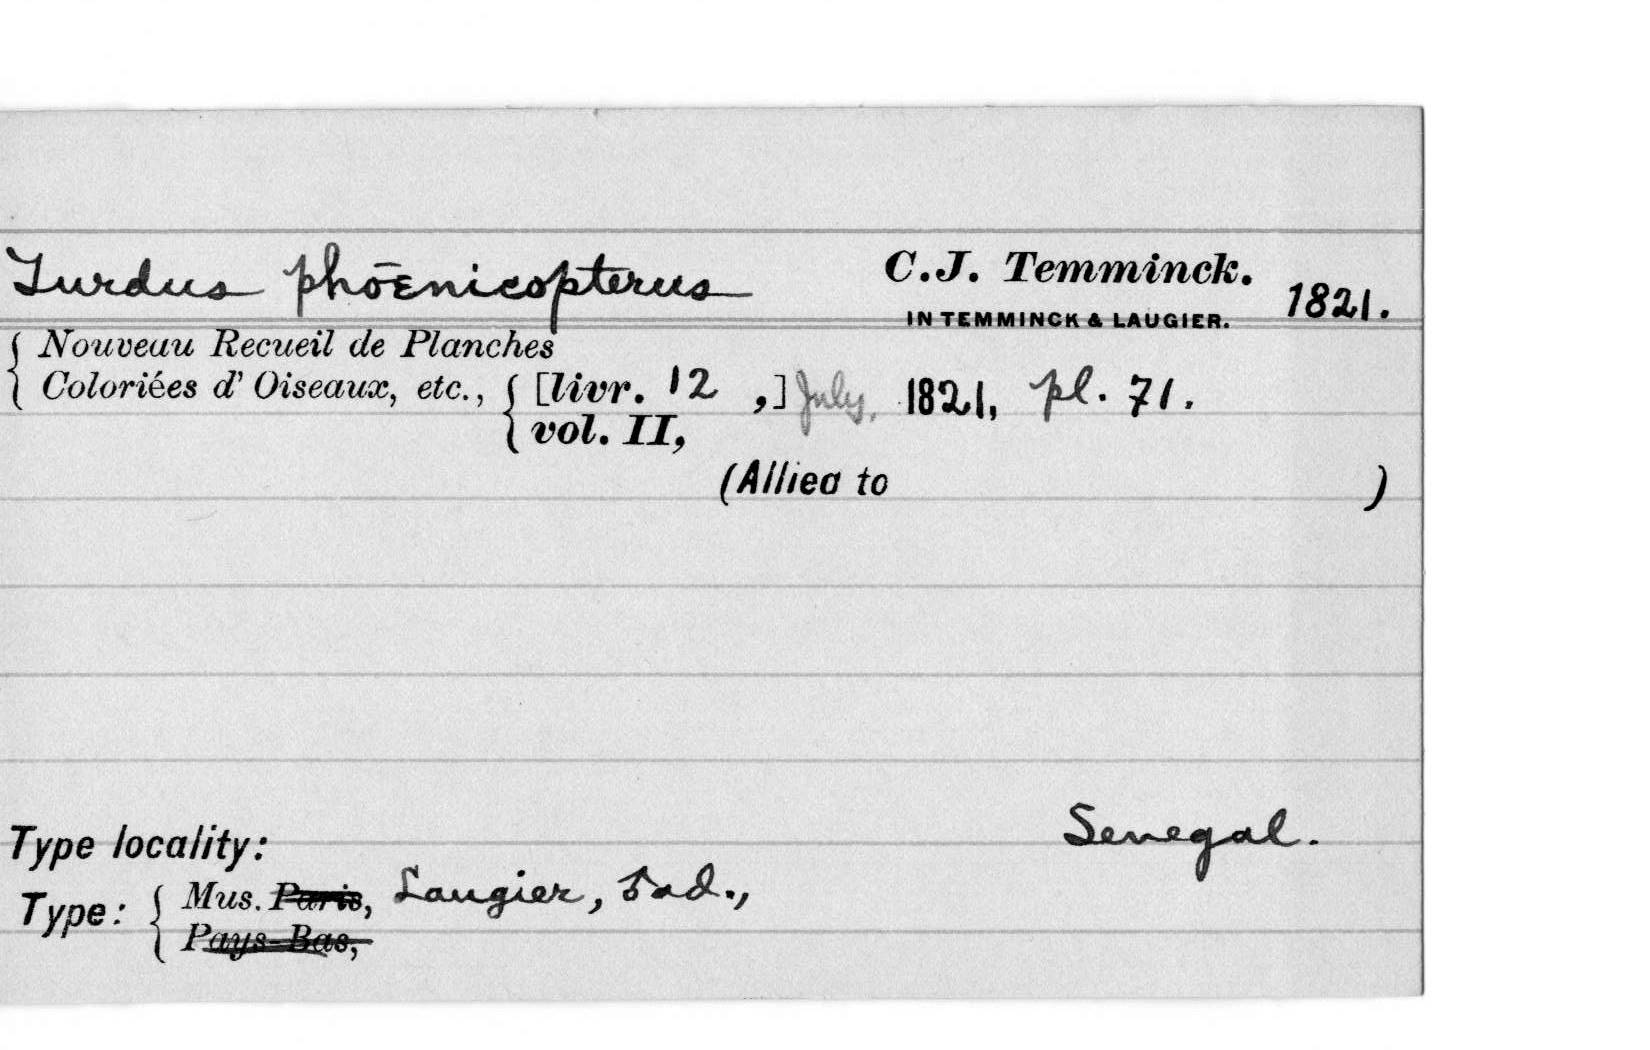 Turdus phoenicopterus C.J. Temminck. 1821.
IN TEMMINCK & LAUGIER.
Nouveau Recueil de Planches
Coloriées d' Oiseaux, etc., [livr. 12 ,] July, 1821, pl. 71.
vol. II,
(Allied to )
Type locality: Senegal.
Type: Mus. Paris, Laugier, ♂ ad.,
Pays-Bas,